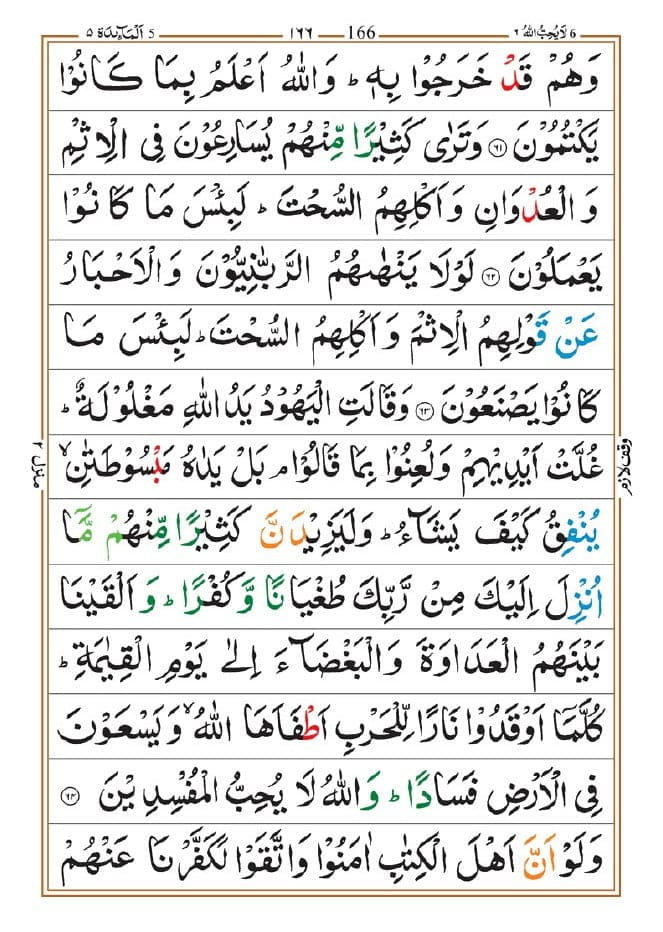 المآئدة ٥ 5 ١٦٦ 166 لا یحب الله ٦ 6
وَهُمْ قَدْ خَرَجُوْا بِهٖ ؕ وَاللّٰهُ اَعْلَمُ بِمَا كَانُوْا
يَكْتُمُوْنَ ﴿۶۱﴾ وَتَرٰى كَثِيْرًا مِّنْهُمْ يُسَارِعُوْنَ فِى الْاِثْمِ
وَ الْعُدْوَانِ وَاَكْلِهِمُ السُّحْتَ ؕ لَبِئْسَ مَا كَانُوْا
يَعْمَلُوْنَ ﴿۶۲﴾ لَوْلَا يَنْهٰىهُمُ الرَّبّٰنِيُّوْنَ وَالْاَحْبَارُ
عَنْ قَوْلِهِمُ الْاِثْمَ وَاَكْلِهِمُ السُّحْتَ ؕ لَبِئْسَ مَا
كَانُوْا يَصْنَعُوْنَ ﴿۶۳﴾ وَقَالَتِ الْيَهُوْدُ يَدُ اللّٰهِ مَغْلُوْلَةٌ ؕ
غُلَّتْ اَيْدِيْهِمْ وَلُعِنُوْا بِمَا قَالُوْا ۘ بَلْ يَدٰهُ مَبْسُوْطَتٰنِ ۙ
يُنْفِقُ كَيْفَ يَشَآءُ ؕ وَلَيَزِيْدَنَّ كَثِيْرًا مِّنْهُمْ مَّاۤ
اُنْزِلَ اِلَيْكَ مِنْ رَّبِّكَ طُغْيَانًا وَّكُفْرًا ؕ وَاَلْقَيْنَا
بَيْنَهُمُ الْعَدَاوَةَ وَالْبَغْضَآءَ اِلٰى يَوْمِ الْقِيٰمَةِ ؕ
كُلَّمَاۤ اَوْقَدُوْا نَارًا لِّلْحَرْبِ اَطْفَاَهَا اللّٰهُ ۙ وَيَسْعَوْنَ
فِى الْاَرْضِ فَسَادًا ؕ وَاللّٰهُ لَا يُحِبُّ الْمُفْسِدِيْنَ ﴿۶۴﴾
وَلَوْ اَنَّ اَهْلَ الْكِتٰبِ اٰمَنُوْا وَاتَّقَوْا لَكَفَّرْنَا عَنْهُمْ
وقف لازم
منزل ٢